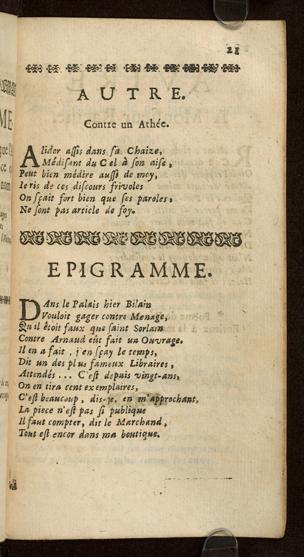 21
AUTRE.
Contre un Athée.
Alidor assis dans sa Chaize,
Médisant du Ciel à son aise,
Peut bien médire aussi de moy,
Ie ris de ces discours frivoles
On sçait fort bien que ses paroles,
Ne sont pas article de foy.
EPIGRAMME.
Dans le Palais hier Bilain
Vouloit gager contre Menage,
Qu'il étoit faux que saint Sorlain
Contre Arnaud eût fait un Ouvrage.
Il en a fait, j'en sçay le temps,
Dit un des plus fameux Libraires,
Attendés... C'est depuis vingt-ans,
On en tira cent exemplaires,
C'est beaucoup, dis-je, en m'approchant,
La piece n'est pas si publique
Il faut compter, dit le Marchand,
Tout est encor dans ma boutique.